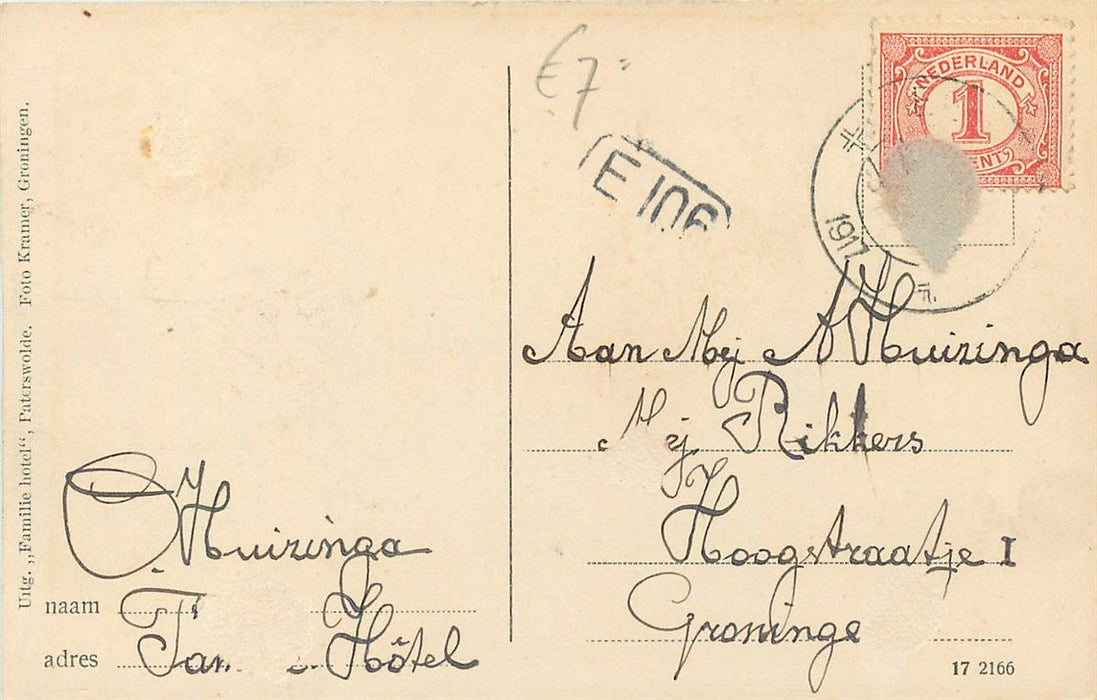 Uitg. „Familie hotel“, Paterswolde. Foto Kramer, Groningen.
€ 7:
E 106
NEDERLAND
1
CENT
1917
Aan Mej A Huizinga
Mej Rikkers
Hoogstraatje I
Groninge
O Huizinga
naam
adres Fam Hôtel
17 2166